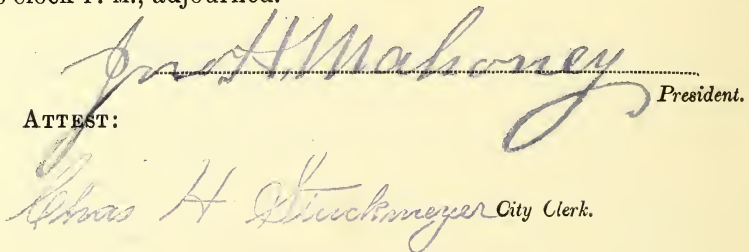 o'clock P. M., adjourned.
Jno H. Mahoney
President.
ATTEST:
Chas H Stuckmeyer City Clerk.